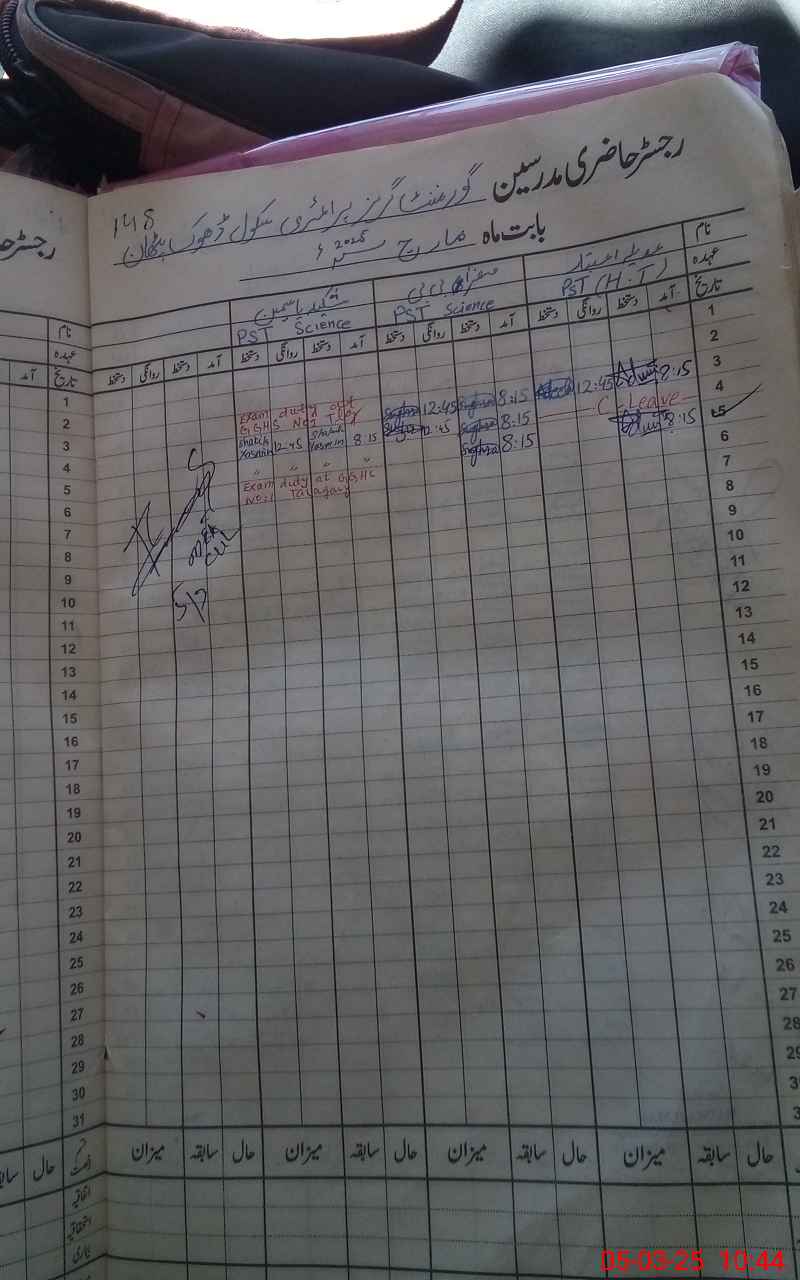 رجسٹر حاضری مدرسین گورنمنٹ گرلز پرائمری سکول ڈھوک پٹھان
148
بابت ماہ مارچ 2025ء
نام
عہدہ
تاریخ
PST (H.T)
بی بی
PST Science
یاسمین
PST Science
آمد دستخط روانگی دستخط آمد دستخط روانگی دستخط آمد دستخط روانگی دستخط آمد دستخط روانگی دستخط
1
2
3 8:15 12:45 8:15 Sughra 12:45 Sughra Exam duty at GGHS No:1
4 C-Leave 8:15 Sughra 12:45 Sughra 8:15 Yasmin 12:45 Yasmin
5 8:15 8:15 Sughra " " " "
Exam duty at GGHS
No:1 Talagang
6
7
8
9
10
11
12
13
14
15
16
17
18
19
20
21
22
23
24
25
26
27
28
29
30
31
حال سابقہ میزان حال سابقہ میزان حال سابقہ میزان حال سابقہ میزان
اتفاقیہ
استحقاقیہ
بیماری
رجسٹر حا
نام
عہدہ
تاریخ
آمد
1
2
3
4
5
6
7
8
9
10
11
12
13
14
15
16
17
18
19
20
21
22
23
24
25
26
27
28
29
30
31
حال
05-03-25 10:44